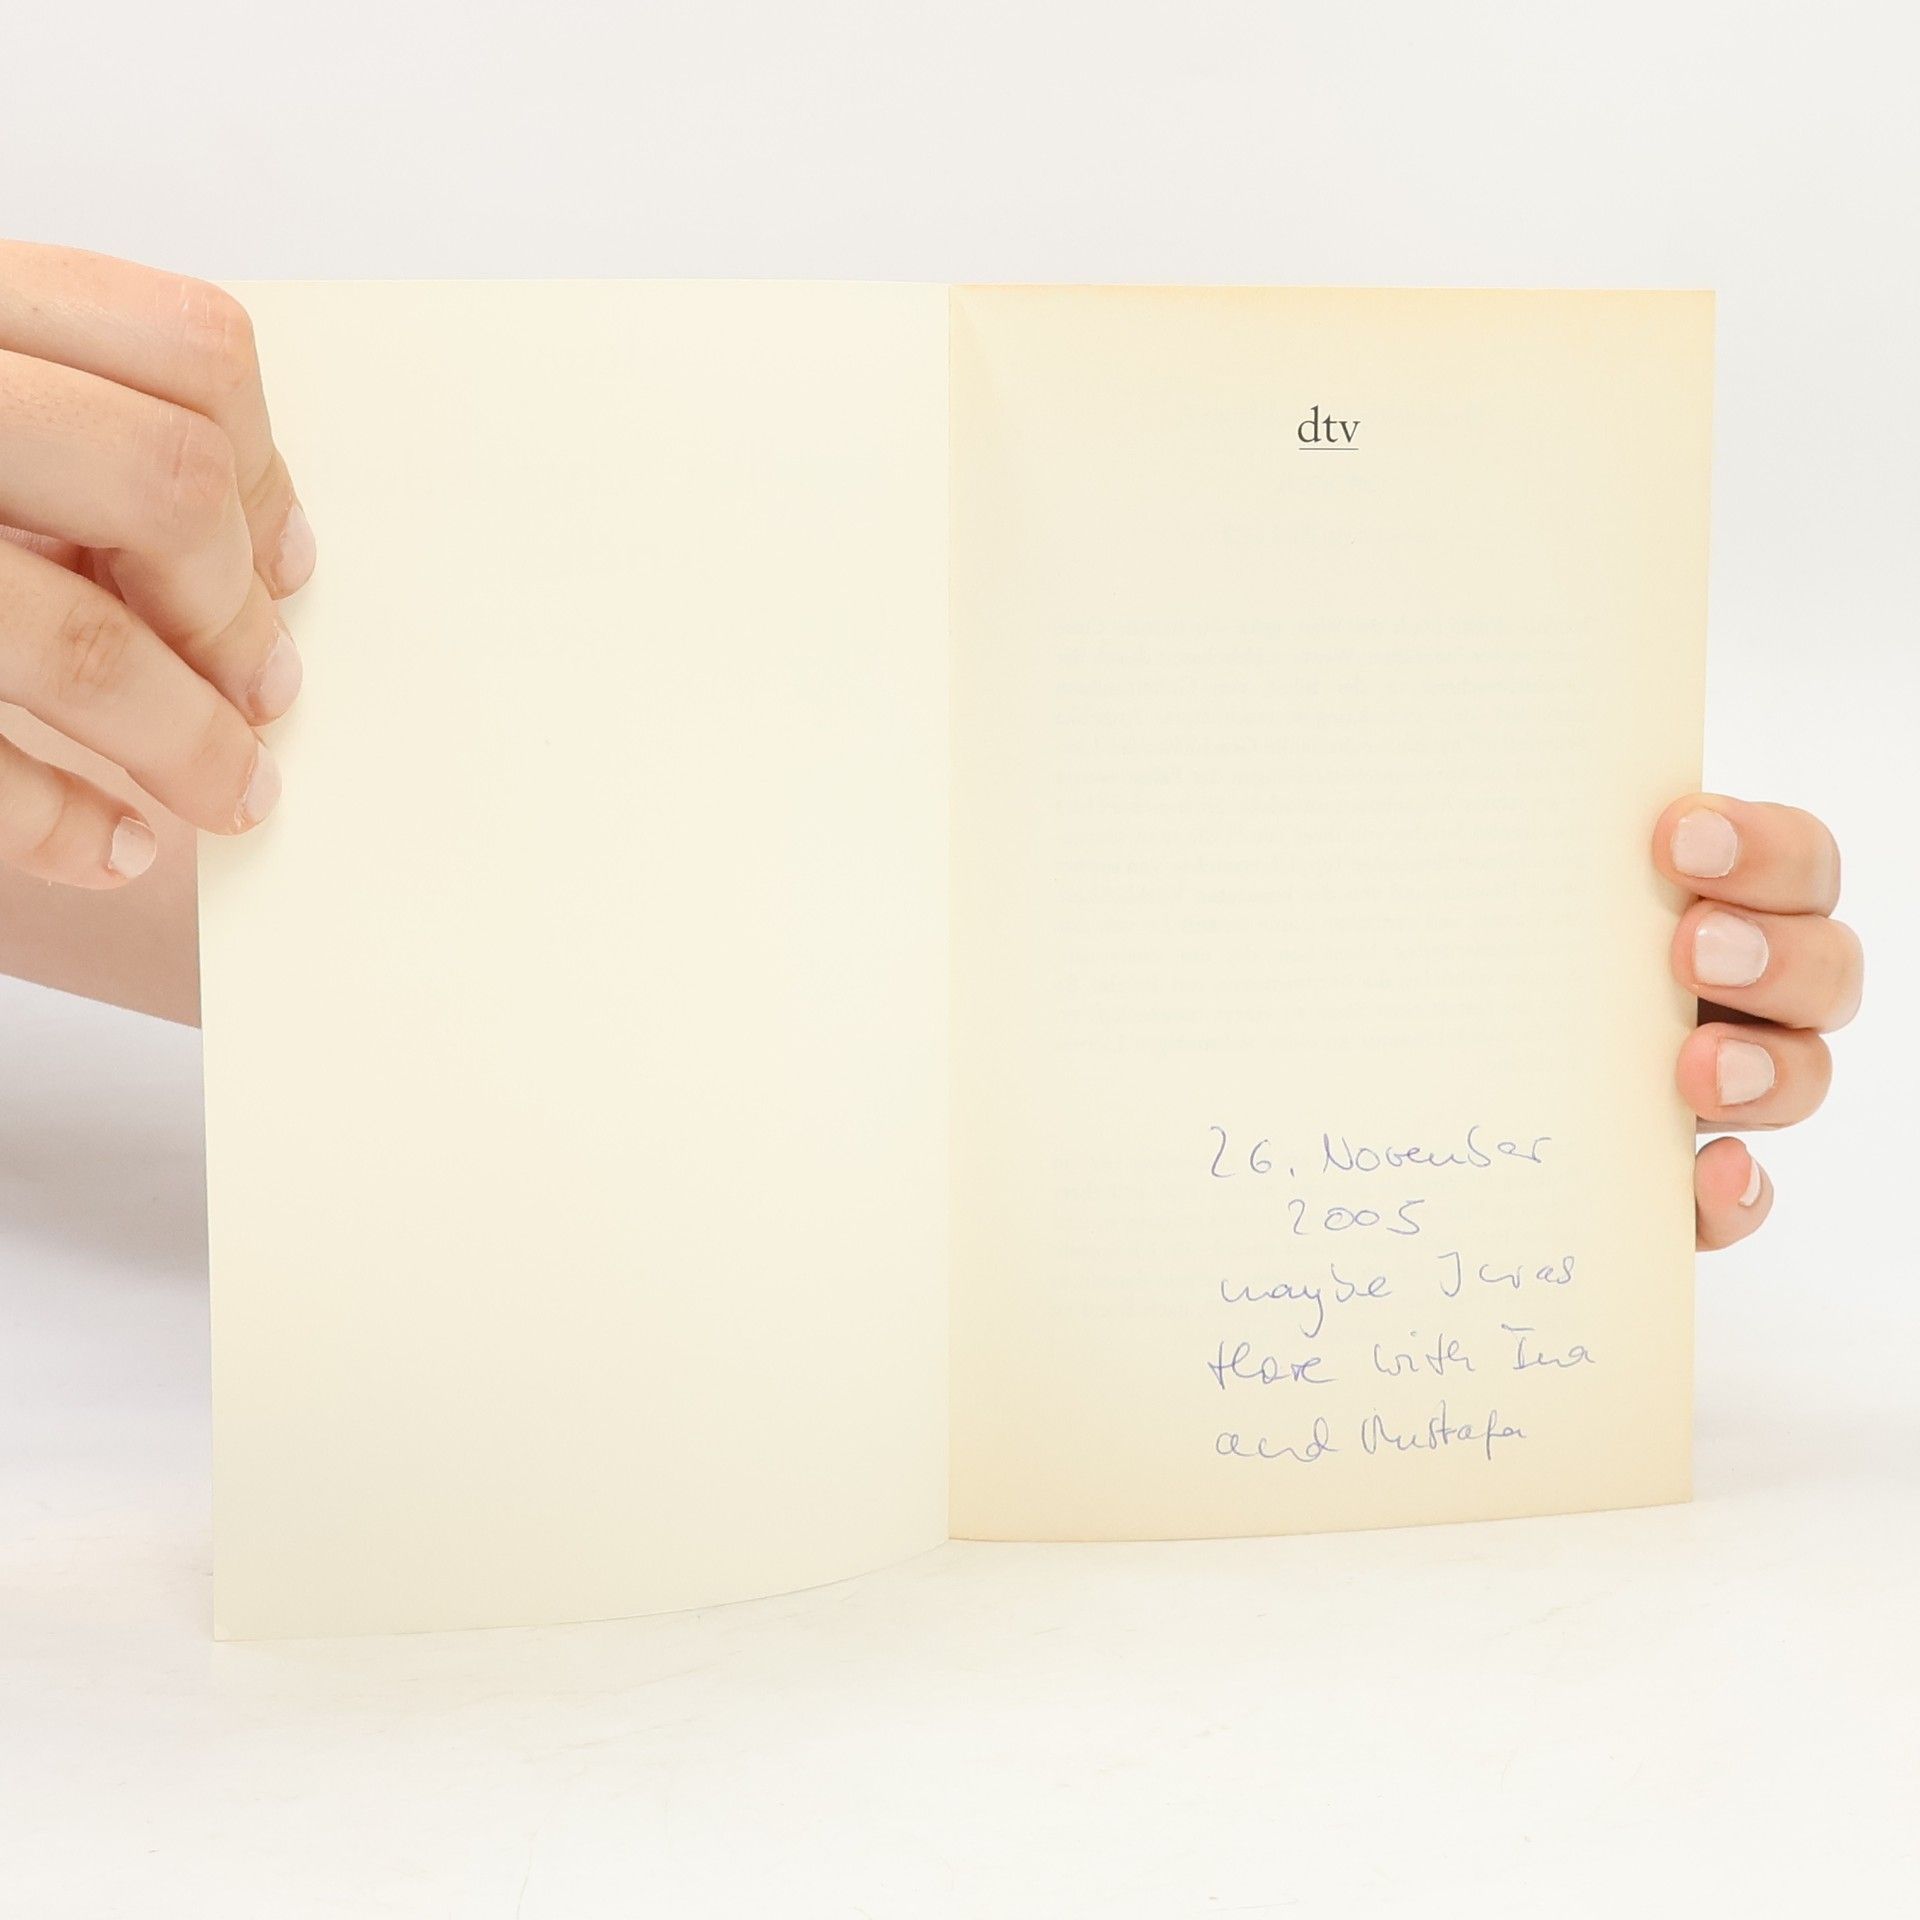 dtv
26. November
2005
maybe I was
there with Ina
and Mustafa